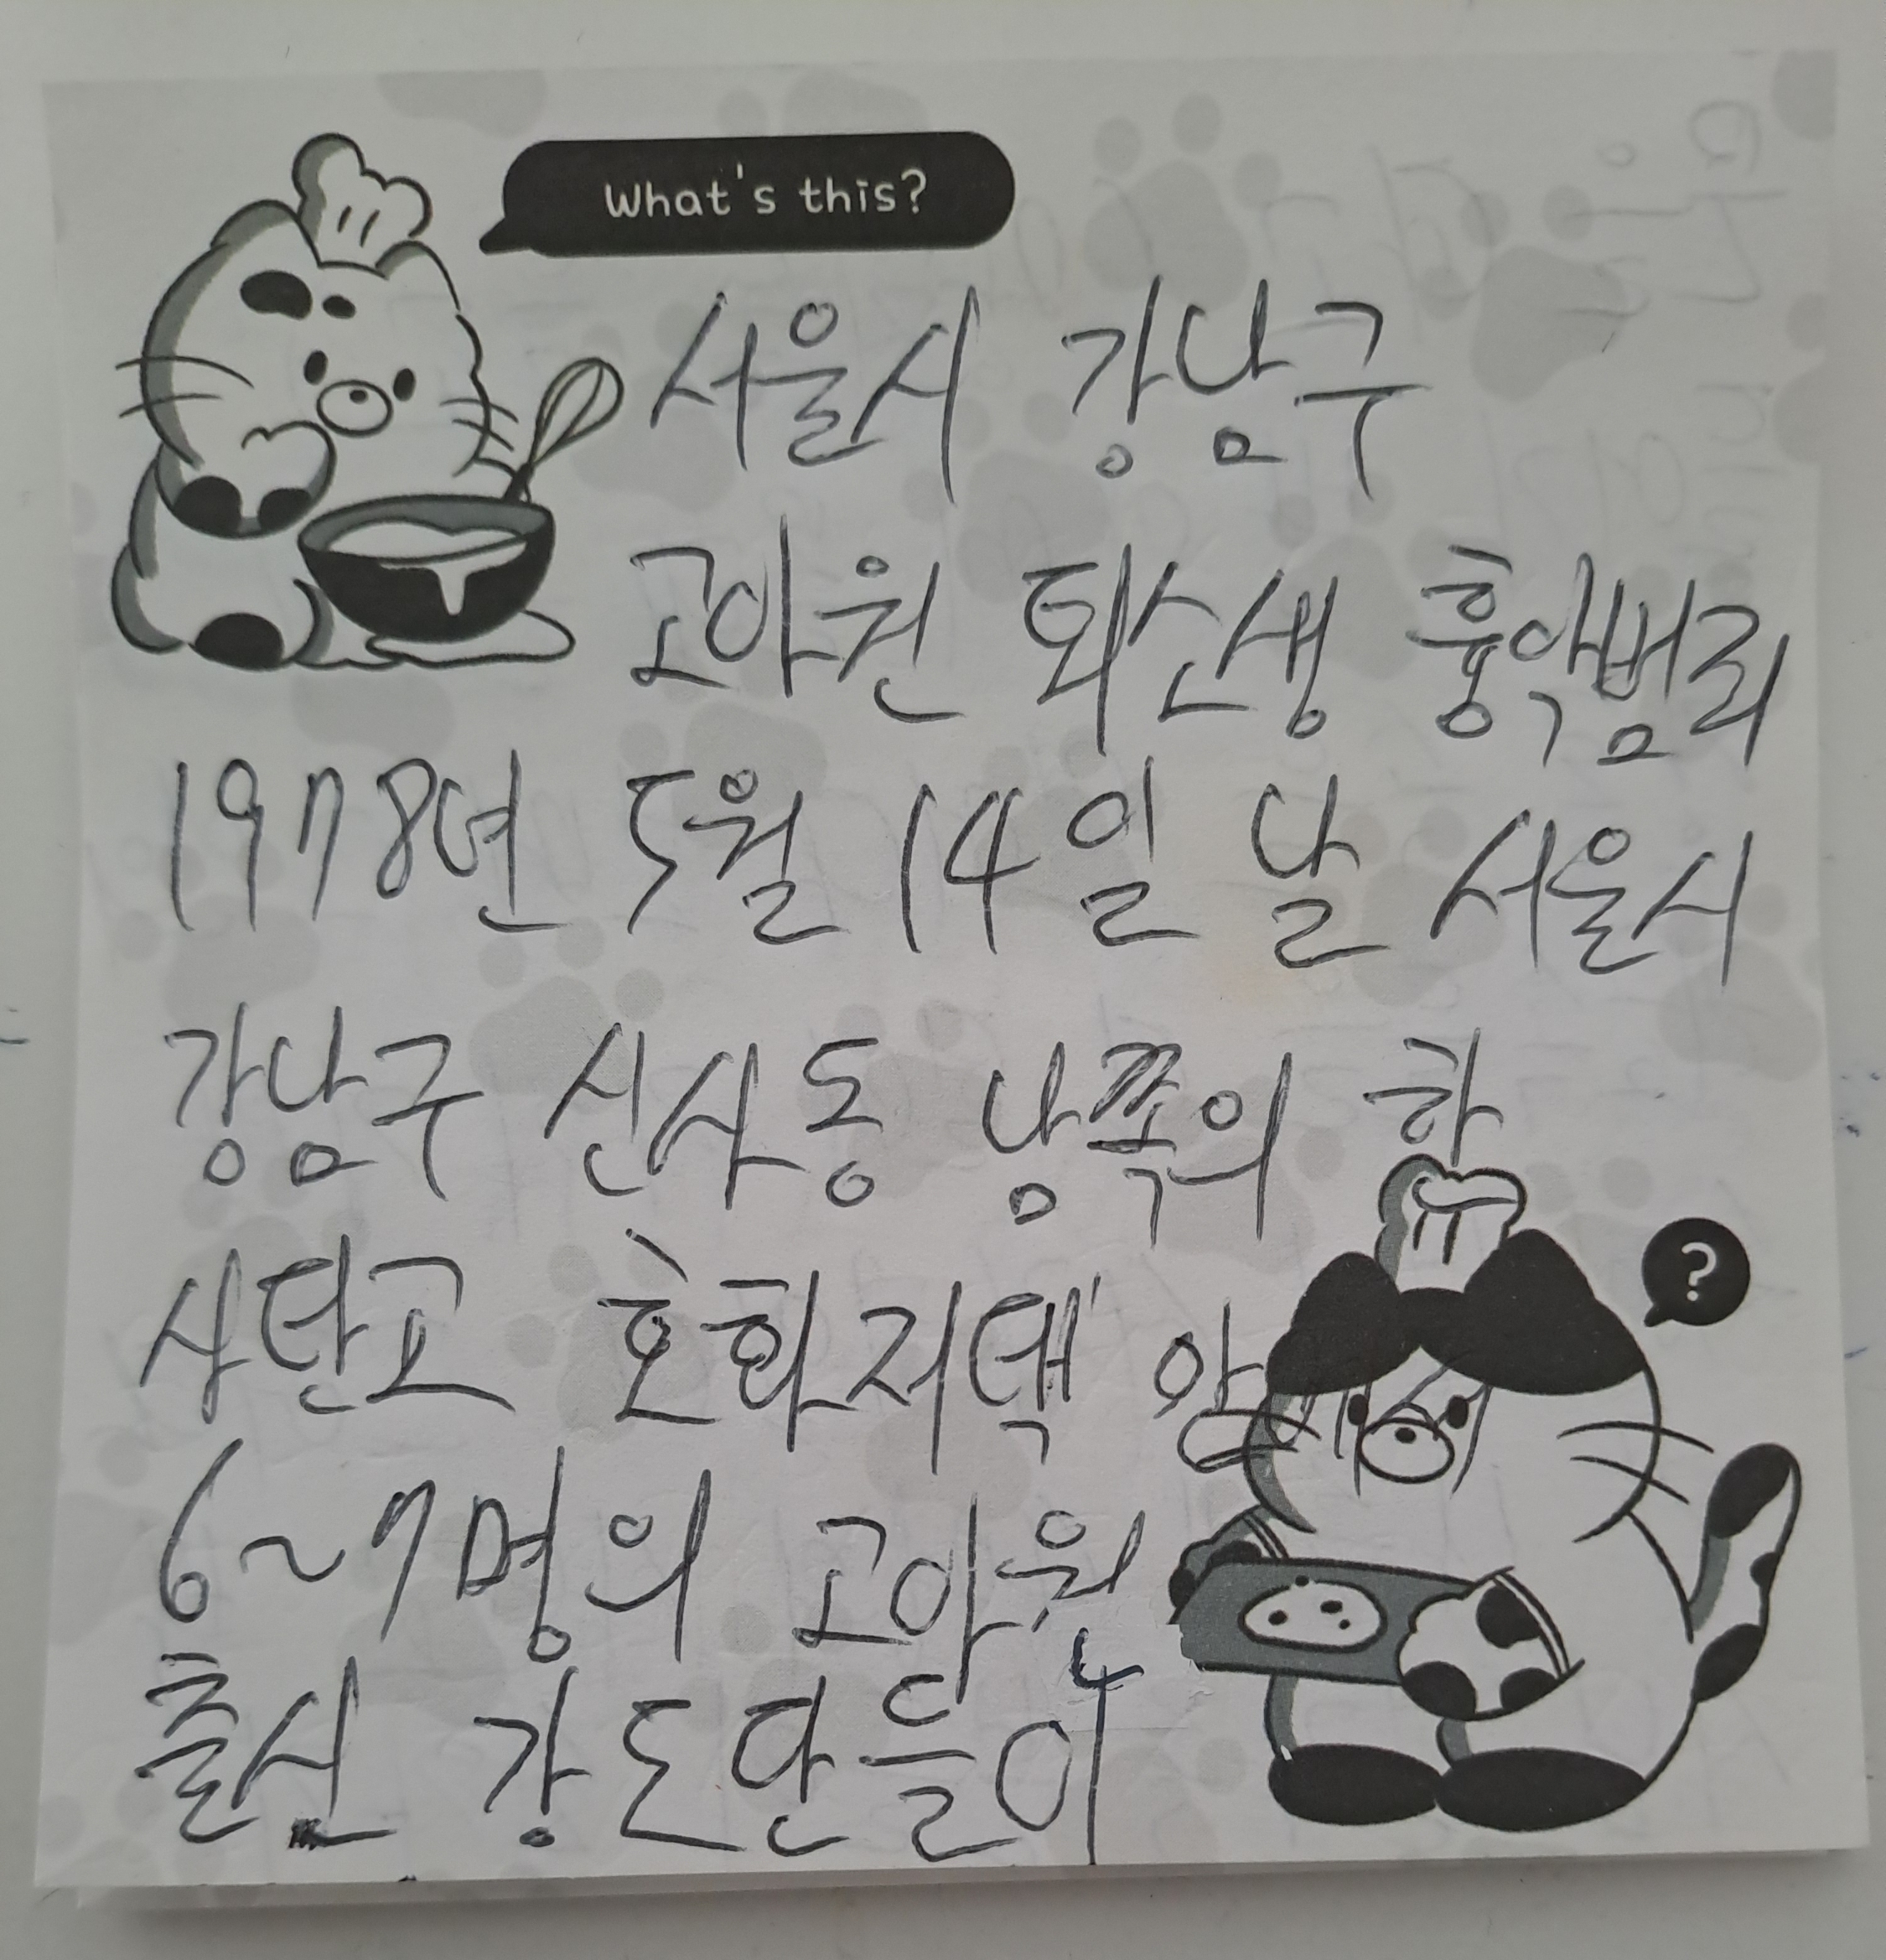 What's this?
서울시 강남구
고아원 퇴소생 흉악범죄
1978년 5월 14일 날 서울시
강남구 신사동 남쪽의 하
상단고 호화저택 앞에서
?
6~7명의 고아원
출신 강도단들이